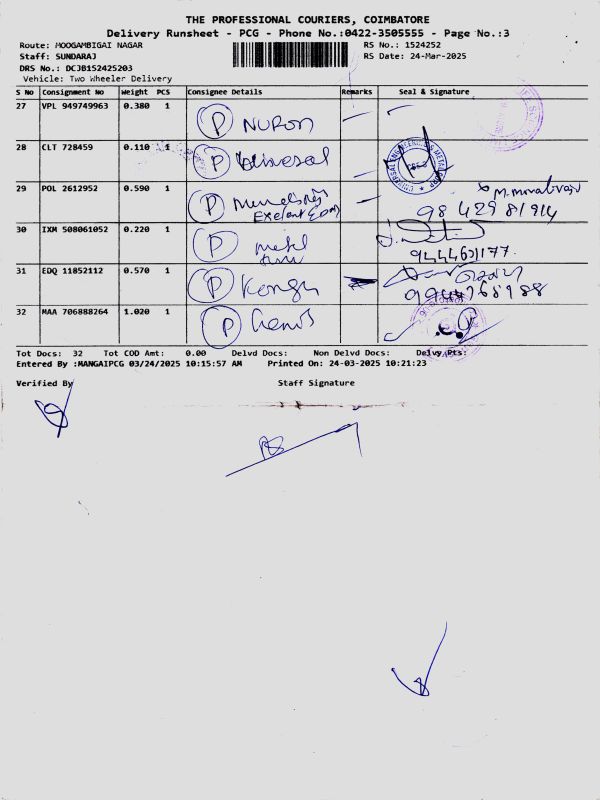 THE PROFESSIONAL COURIERS, COIMBATORE
Delivery Runsheet - PCG - Phone No.:0422-3505555 - Page No.:3
Route: MOOGAMBIGAI NAGAR RS No.: 1524252
Staff: SUNDARAJ RS Date: 24-Mar-2025
DRS No.: DCJB152425203
Vehicle: Two Wheeler Delivery
S No Consignment No Weight PCS Consignee Details Remarks Seal & Signature
27 VPL 949749963 0.380 1 P NURON
28 CLT 728459 0.110 1 P
29 POL 2612952 0.590 1 P
98 42981914
30 IXM 508061052 0.220 1 P
9444601177
31 EDQ 11852112 0.570 1 P Kongu
32 MAA 706888264 1.020 1 P
Tot Docs: 32 Tot COD Amt: 0.00 Delvd Docs: Non Delvd Docs: Delvy Pts:
Entered By :MANGAIPCG 03/24/2025 10:15:57 AM Printed On: 24-03-2025 10:21:23
Verified By Staff Signature